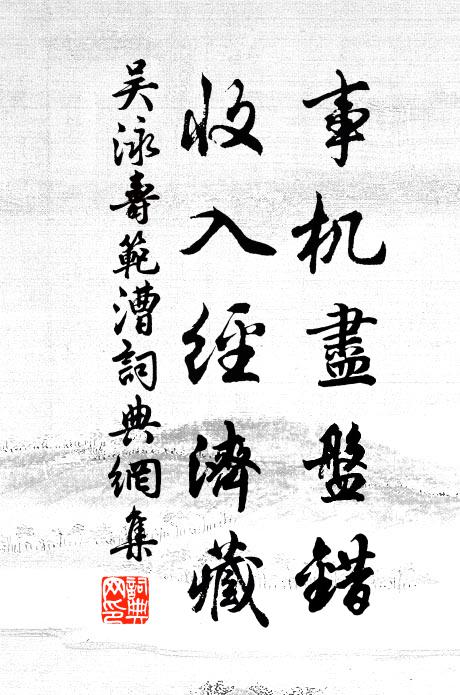 事机盡盤錯
收入經濟藏
吴泳壽範漕詞典網集
詞典网印